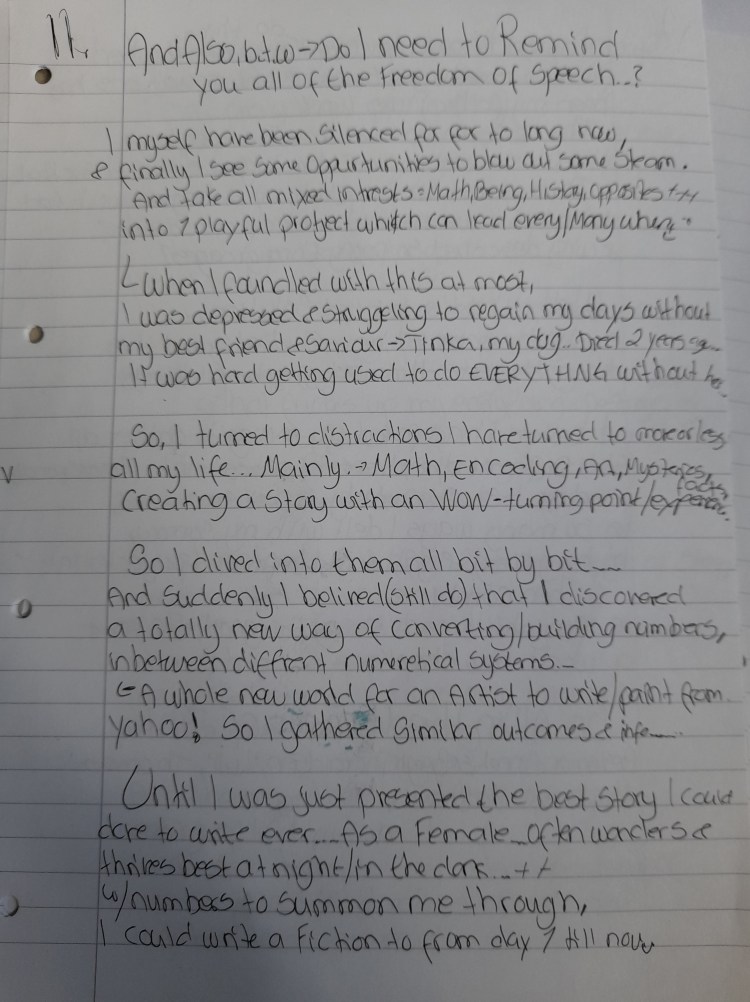 11.
And Also, b.t.w → Do I need to Remind
you all of the Freedom of Speech..?
I myself have been silenced for far to long now,
& finally I see some oppurtunities to blow out some steam.
And Take all mixed intrests = Math, Being, History, opposites ++
into 1 playful project which can lead every/Many where
When I foundled with this at most,
I was depressed & struggeling to regain my days without
my best friend & Saviour → Tinka, my dog.. Died 2 years
It was hard getting used to do EVERYTHNG without
So, I turned to distractions I have turned to more or less
all my life... Mainly → Math, Encoding, Art, Mysteries,
facts,
Creating a Story with an WOW-turning point/
So I dived into them all bit by bit....
And suddenly I belived (still do) that I discovered
a totally new way of converting/building numbers,
inbetween diffrent numeretical systems...
A whole new world for an Artist to write/paint from.
Yahoo! So I gathered Similar outcomes & info.....
Until I was just presented the best story I could
dare to write ever.... As a Female often wonders &
thrives best at night/in the dark... ++
w/numbers to summon me through,
I could write a Fiction to from day 1 till now